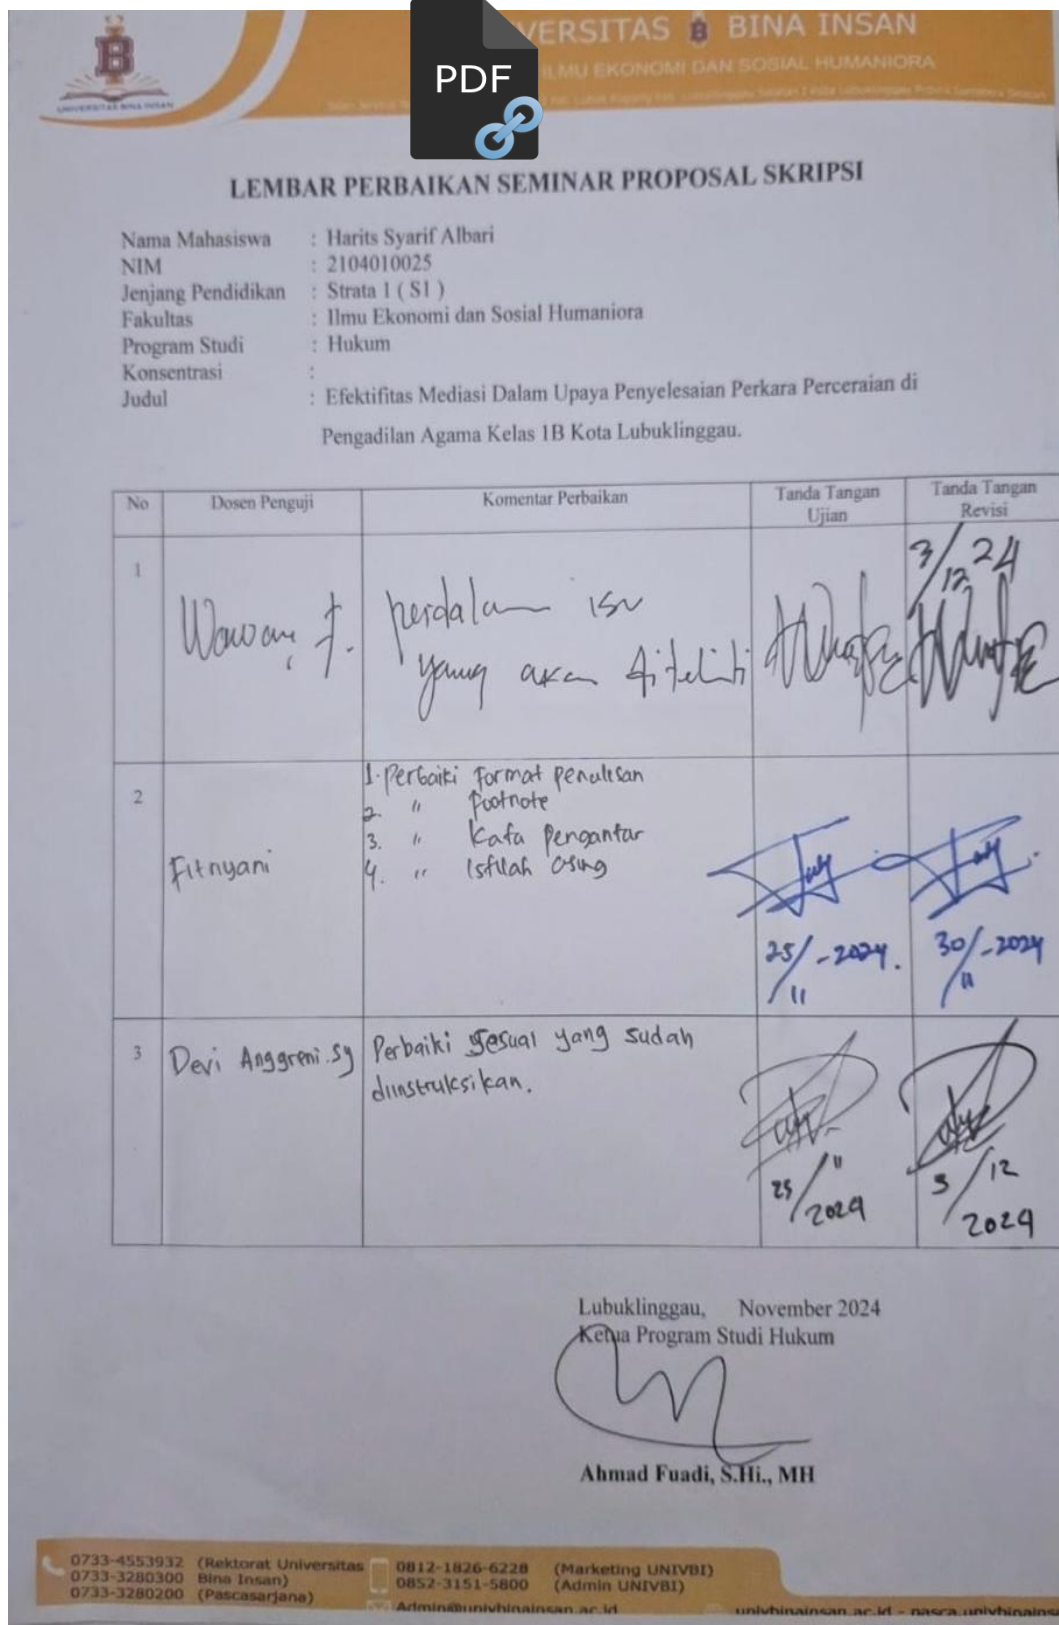 PDF
VERSITAS BINA INSAN
ILMU EKONOMI DAN SOSIAL HUMANIORA
B
UNIVERSITAS BINA INSAN
LEMBAR PERBAIKAN SEMINAR PROPOSAL SKRIPSI
Nama Mahasiswa : Harits Syarif Albari
NIM : 2104010025
Jenjang Pendidikan : Strata 1 ( S1 )
Fakultas : Ilmu Ekonomi dan Sosial Humaniora
Program Studi : Hukum
Konsentrasi :
Judul : Efektifitas Mediasi Dalam Upaya Penyelesaian Perkara Perceraian di
Pengadilan Agama Kelas 1B Kota Lubuklinggau.
No Dosen Penguji Komentar Perbaikan Tanda Tangan Ujian Tanda Tangan Revisi
1 Wawan, F. perdalam isu
yang akan diteliti
3/12 24
2 Fitriyani
1. Perbaiki Format penulisan
2. " footnote
3. " Kata Pengantar
4. " Istilah asing
25/11-2024. 30/11-2024
3 Devi Anggreni.Sy Perbaiki sesuai yang sudah
diinstruksikan.
25/11 2024 3/12 2024
Lubuklinggau, November 2024
Ketua Program Studi Hukum
Ahmad Fuadi, S.Hi., MH
0733-4553932 (Rektorat Universitas
0733-3280300 Bina Insan)
0733-3280200 (Pascasarjana)
0812-1826-6228 (Marketing UNIVBI)
0852-3151-5800 (Admin UNIVBI)
Admin@univbinainsan.ac.id
univbinainsan.ac.id - pasca.univbinainsa